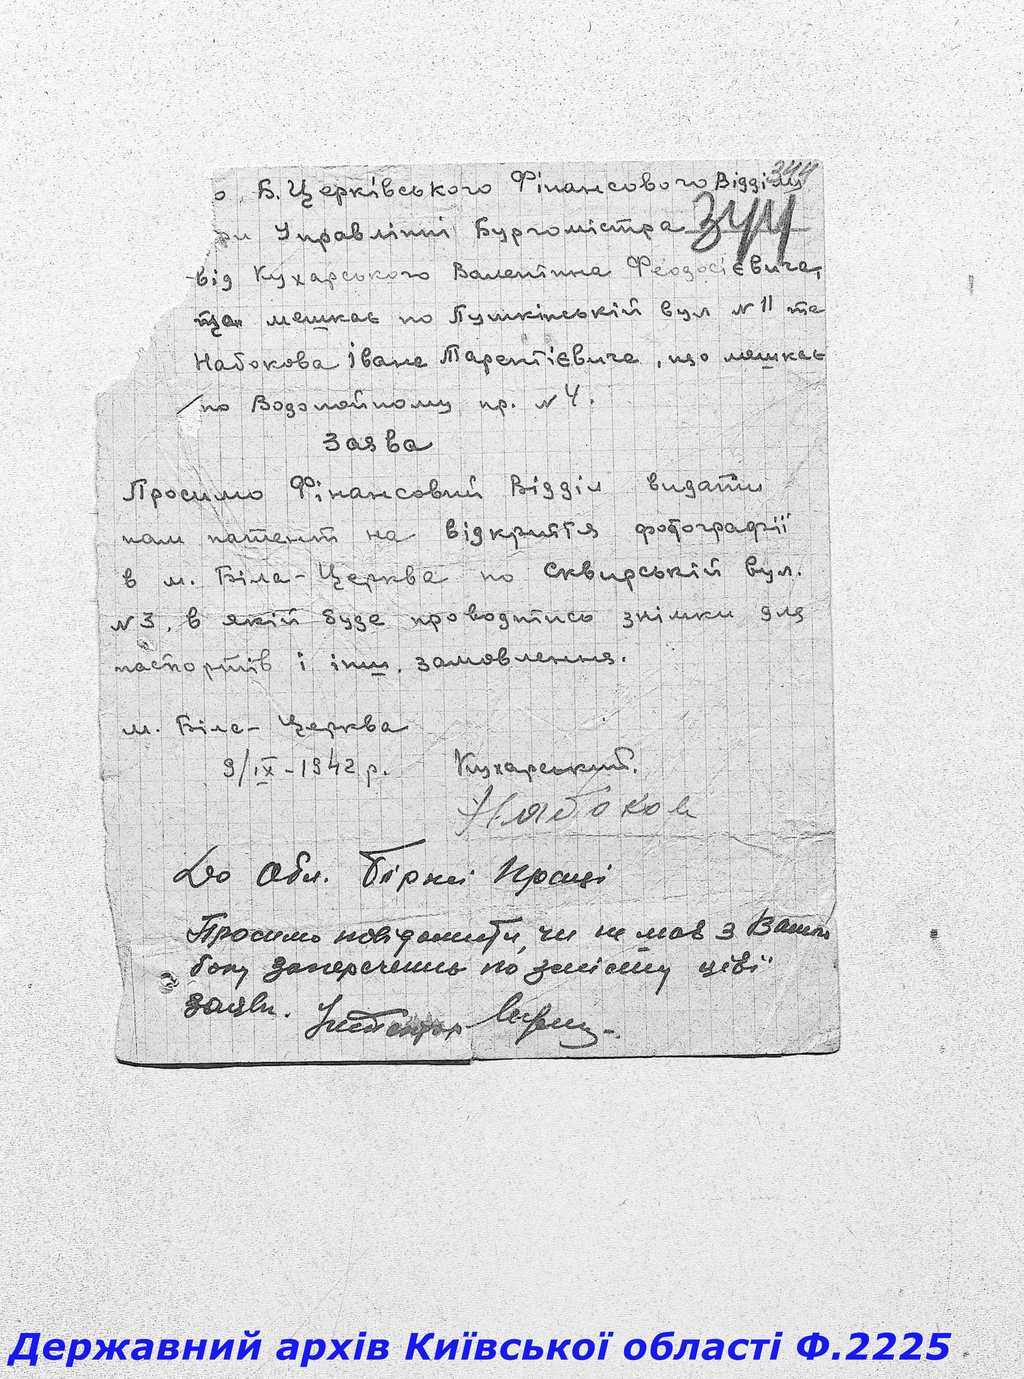 344
о Б. Церківського Фінансового Відділу
ри Управлінні Бургомістра 344
від Кухарського Валентина Феодосієвича,
що мешкає по Пушкінській вул № 11 та
Набокова Івана Тарентієвича, що мешкає
по Водопойному пр. № 4.
Заява
Просимо Фінансовий Відділ видати
нам патент на відкриття фотографії
в м. Біла-Церква по Сквирській вул.
№ 3, в якій буде проводитись знімки для
паспортів і інш. замовлення.
м. Біла-Церква
9/IX-1942 р. Кухарський.
Набоков
До Обл. Біржи Праці
Просимо повідомити, чи не мав з Вашого
боку заперечень по змісту цієї
заяви. Інспектор
Державний архів Київської області Ф.2225